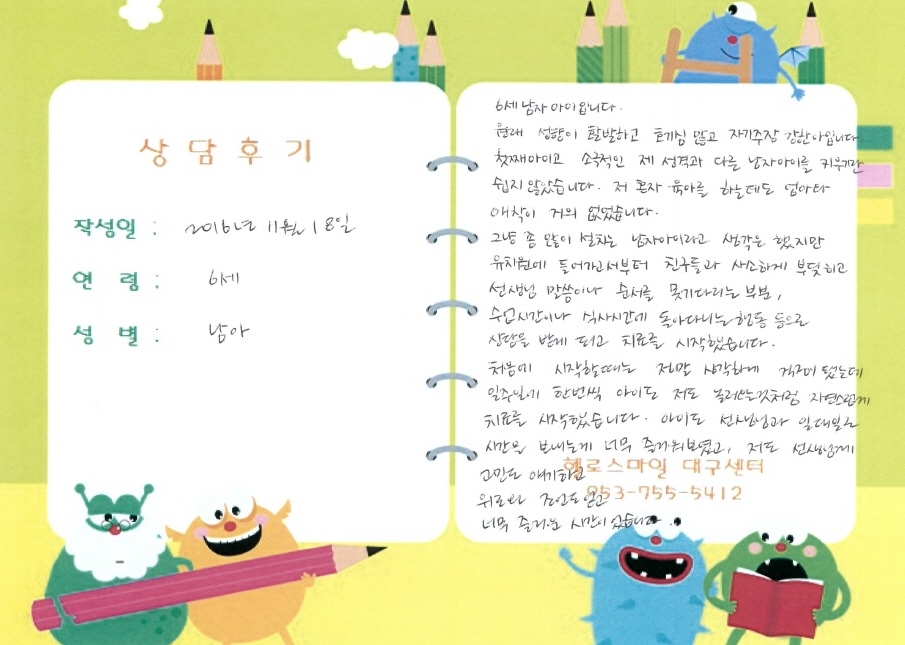 상담후기
작성일 : 2016년 11월 18일
연 령 : 6세
성 별 : 남아
6세 남자 아이입니다.
원래 성향이 활발하고 호기심 많고 자기주장 강한아입니다
첫째아이고 소극적인 제 성격과 다른 남자아이를 키우기란
쉽지 않았습니다. 저 혼자 육아를 하는데도 엄마라
애착이 거의 없었습니다.
그냥 좀 많이 설치는 남자아이라고 생각은 했지만
유치원에 들어가고서부터 친구들과 사소하게 부딪히고
선생님 말씀이나 순서를 못기다리는 부분,
수업시간이나 식사시간에 돌아다니는 행동 등으로
상담을 받게 되고 치료를 시작했습니다.
처음에 시작할때는 정말 걱정이 됐는데
일주일에 한번씩 아이도 저도 놀러오는것처럼 자연스럽게
치료를 시작했습니다. 아이도 선생님과 일대일로
시간을 보내는게 너무 즐거워보였고, 저도 선생님께
고민도 얘기하고
헬로스마일 대구센터
위로와 조언도 얻고
053-755-5412
너무 즐거운 시간이 였습니다.